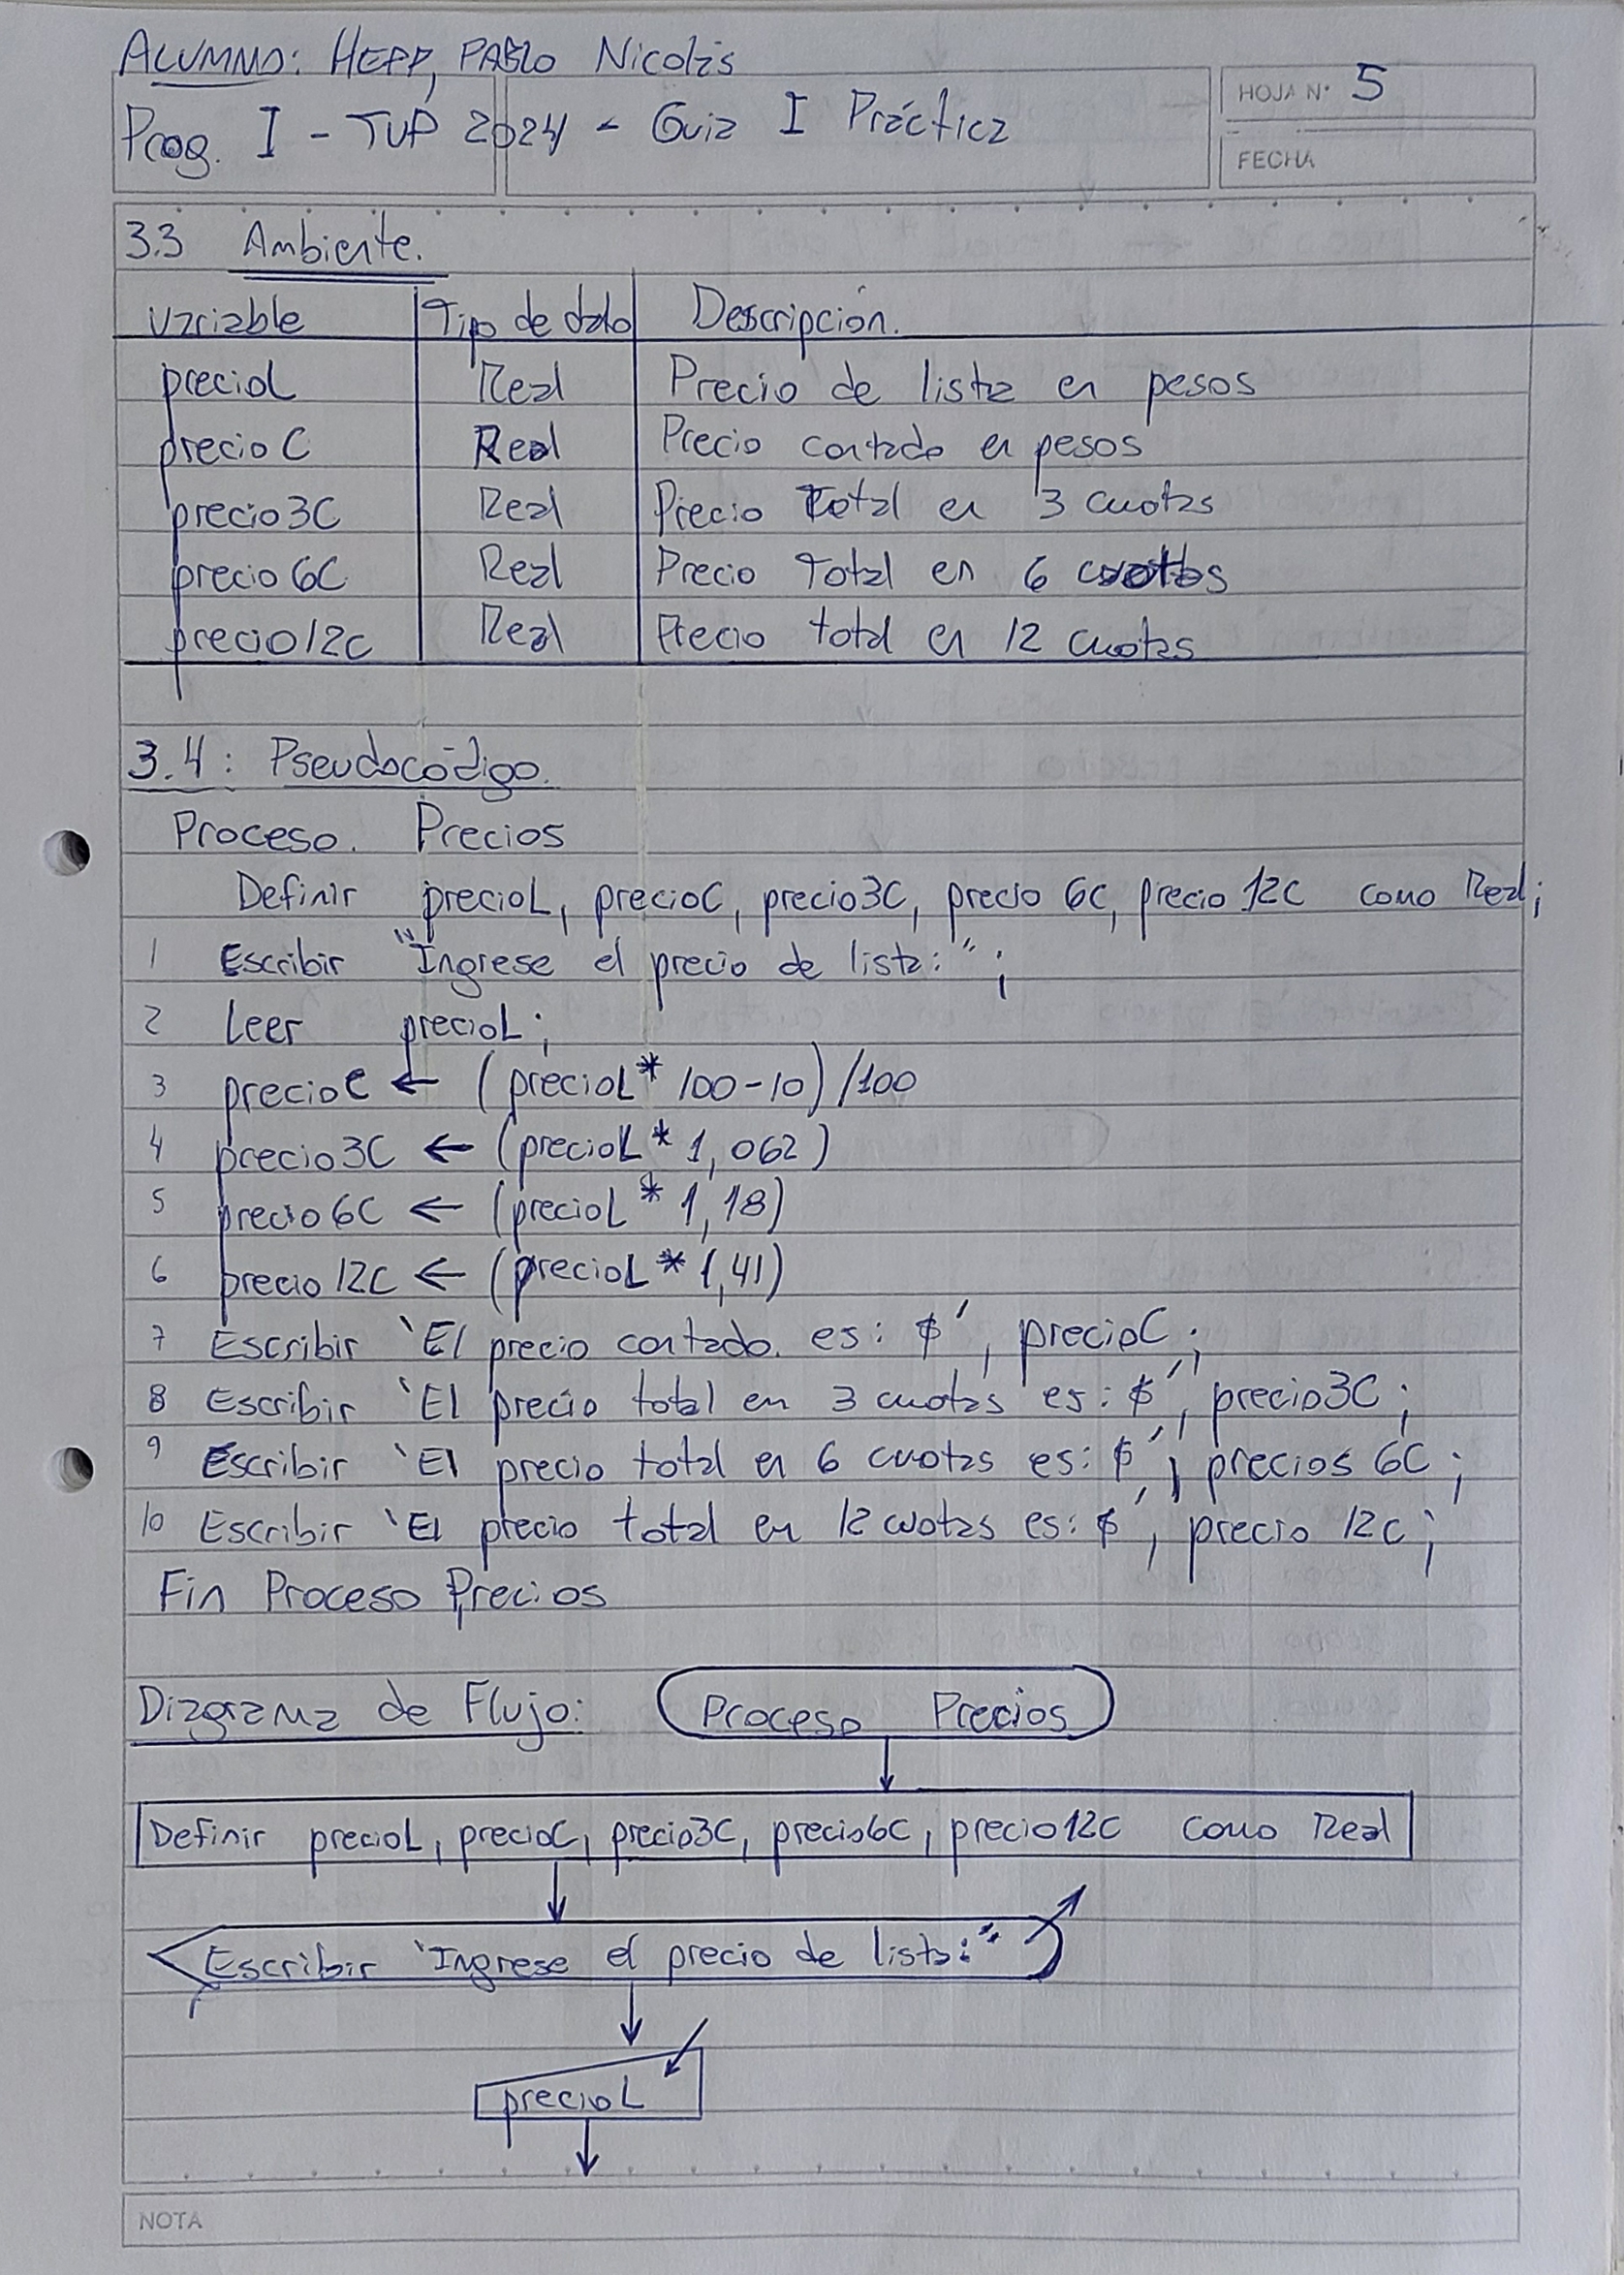 ALUMNO: HEPP, PABLO Nicolás
Prog. I - TUP 2024 - Guia I Práctica
HOJA N° 5
FECHA
3.3 Ambiente.
Variable Tipo de dato Descripción.
precioL Real Precio de lista en pesos
precio C Real Precio contado en pesos
precio3C Real Precio Total en 3 cuotas
precio 6C Real Precio Total en 6 cuotas
precio12c Real Precio total en 12 cuotas
3.4: Pseudocódigo.
Proceso. Precios
Definir precioL, precioC, precio3C, precio 6C, precio 12C como Real;
1 Escribir "Ingrese el precio de lista:" ;
2 Leer precioL;
3 precioC ← (precioL * 100-10) /100
4 precio3C ← (precioL * 1,062)
5 precio6C ← (precioL * 1,18)
6 precio 12C ← (precioL * 1,41)
7 Escribir 'El precio contado. es: $', precioC;
8 Escribir 'El precio total en 3 cuotas es: $', precio3C;
9 Escribir 'El precio total en 6 cuotas es: $', precios 6C;
10 Escribir 'El precio total en 12 cuotas es: $', precio 12c;
Fin Proceso Precios
Diagrama de Flujo: Proceso Precios
Definir precioL, precioC, precio3C, precio6C, precio12C como Real
Escribir 'Ingrese el precio de lista:"
precioL
NOTA